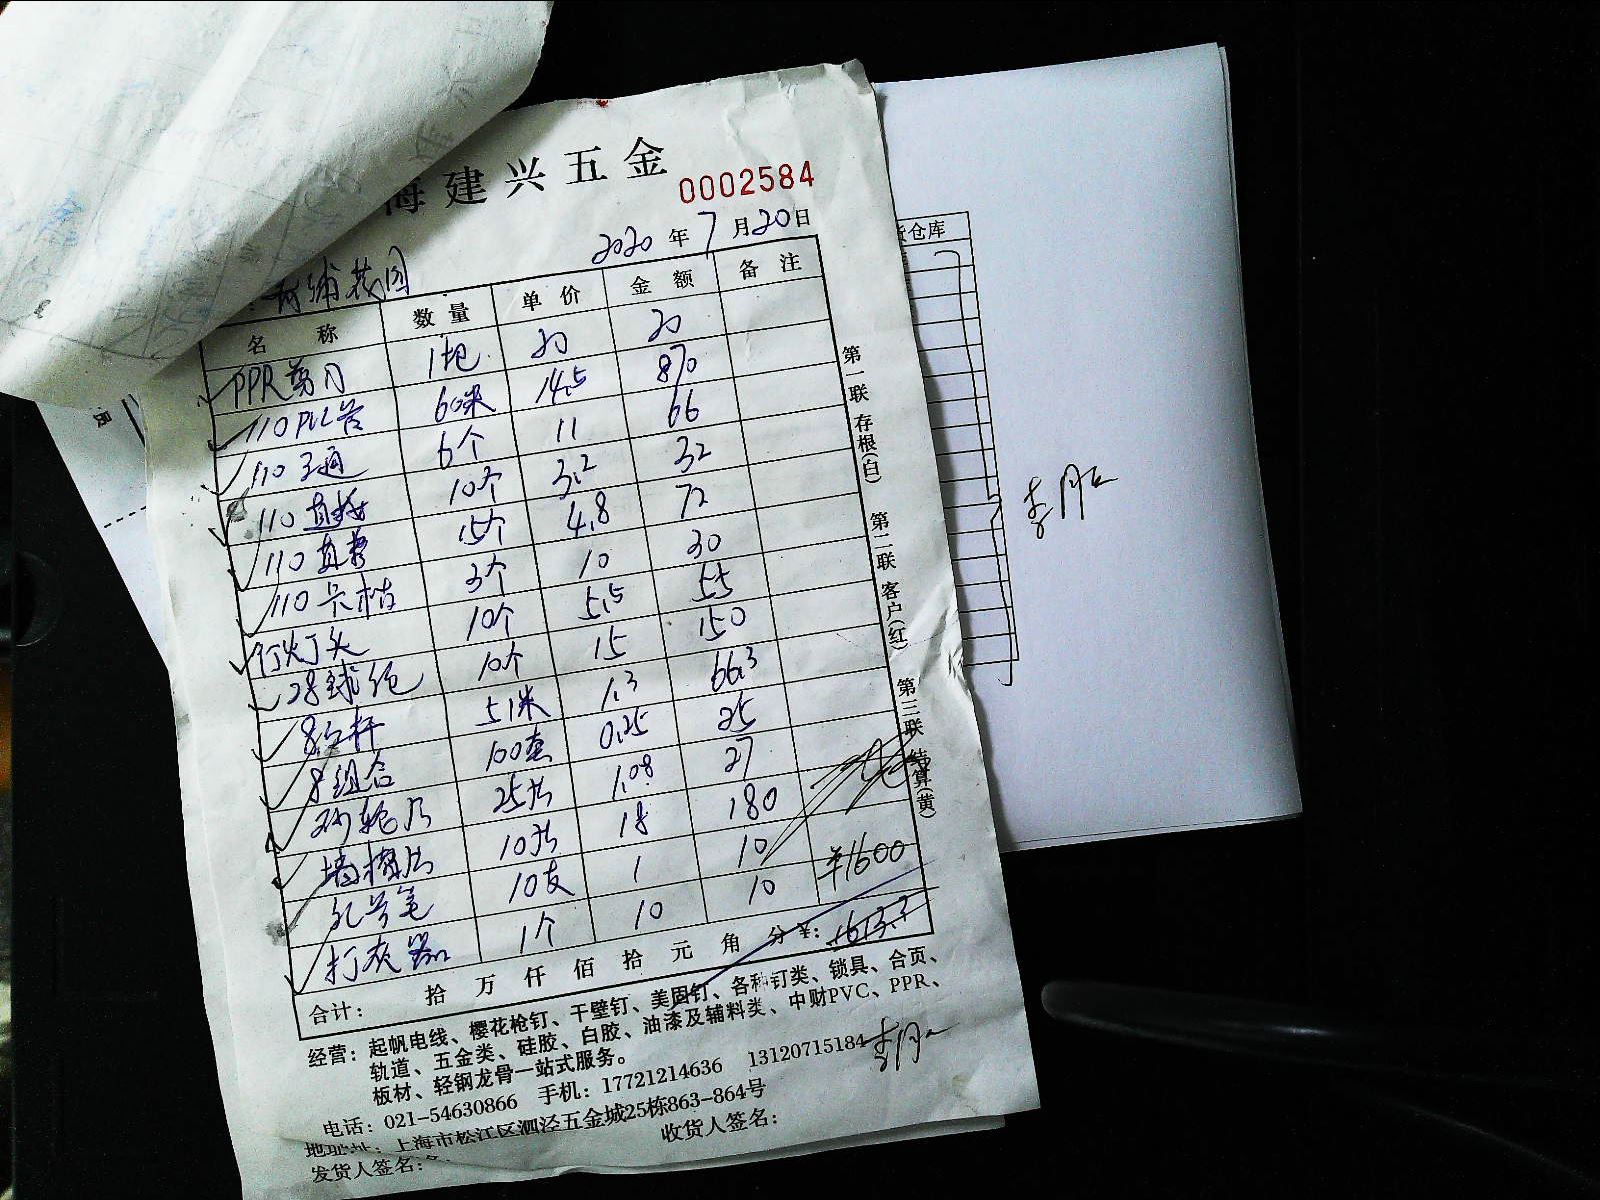 海建兴五金
0002584
2020年7月20日
浦花园
名称 数量 单价 金额 备注
PPR剪刀 1把 20 20
110PVC管 60米 14.5 870
110三通 6个 11 66
110直接 10个 3.2 32
110直 15个 4.8 72
110 3个 10 30
灯头 10个 5.5 55
28球 10个 15 150
8 51米 1.3 66.3
8组合 100套 0.25 25
砂轮片 25片 1.08 27
墙槽片 10片 18 180
记号笔 10支 1 10 ¥1600
打灰器 1个 10 10
合计: 拾万仟佰拾元角分 ¥:1613.3
经营:起帆电线、樱花枪钉、干壁钉、美固钉、各种钉类、锁具、合页、
轨道、五金类、硅胶、白胶、油漆及辅料类、中财PVC、PPR、
板材、轻钢龙骨一站式服务。
电话:021-54630866 手机:17721214636 13120715184
地址:上海市松江区泗泾五金城25栋863-864号
发货人签名: 收货人签名:
第一联 存根(白) 第二联 客户(红) 第三联 结算(黄)
货仓库
员